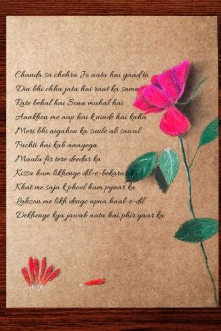 Chanda sa chehra Jo aata hai yaad to
Din bhi chha jata hai raat ka sama
Rate behal hai Sona muhal hai
Aankhon me aap hai k nindе hai kaha
Meri bhi nigahon ka sunle ab sawal
Puchti hai kab aaayega
Maula fir tere deedar ka
Kissa hum likhenge dil-e-bekarar ka
Khat me saja k phool ham pyaar ka
Labzon me likh denge apna haal-e-dil
Dekhenge kya jawab aata hai phir yaar ka